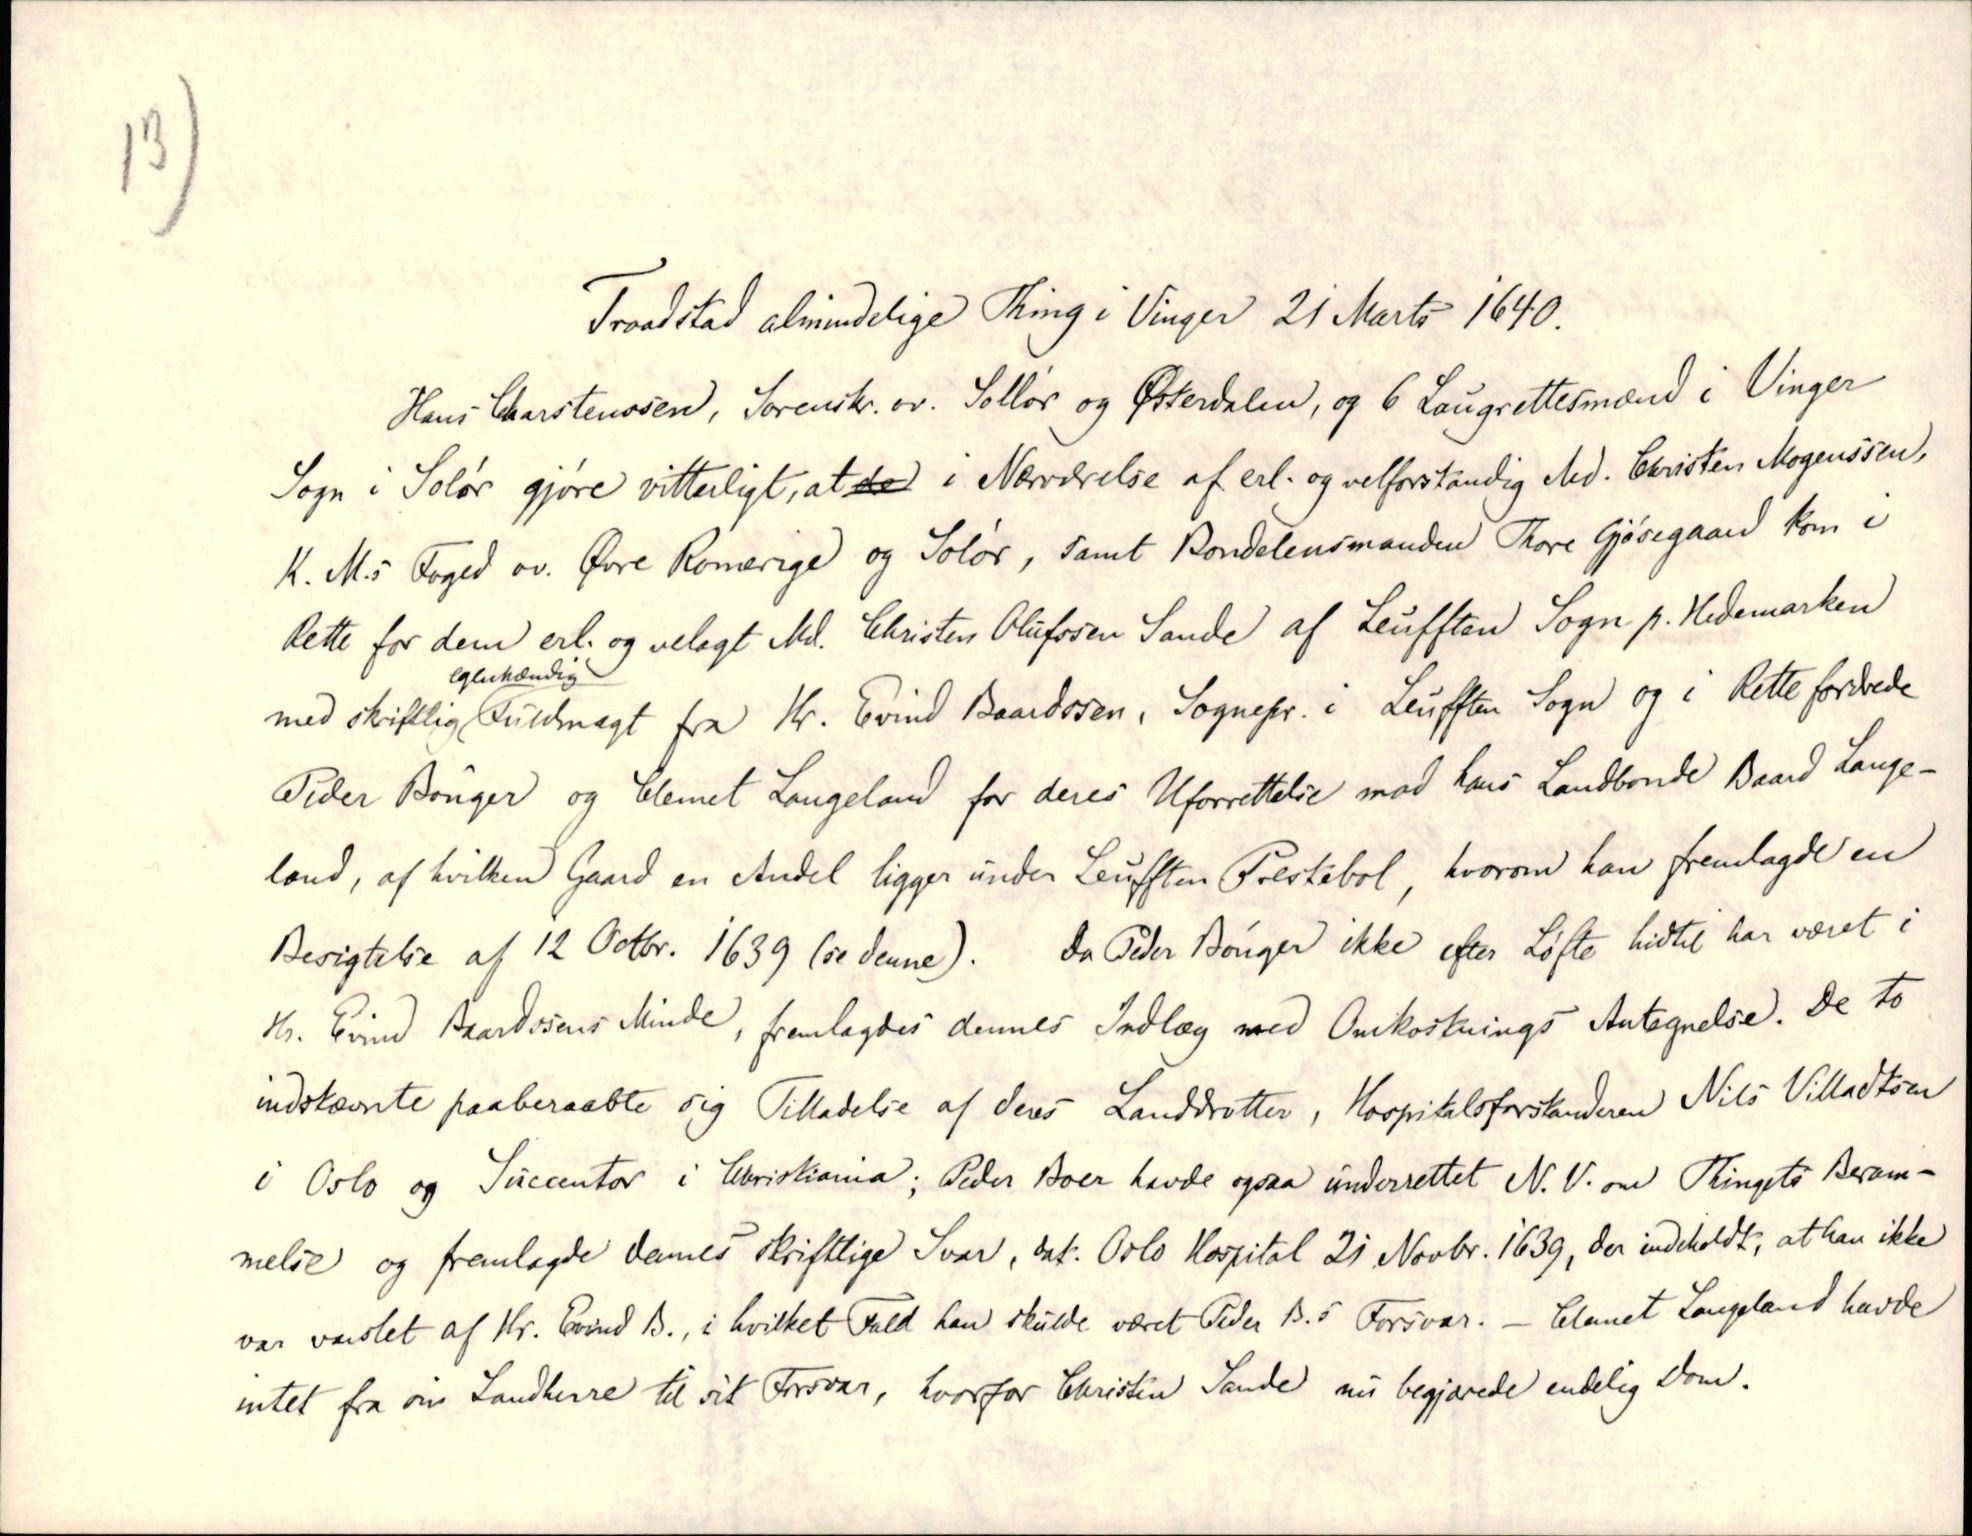 13)
Traadstad almindelige Thing i Vinger 21 Marts 1640.
Hans Charstenssen, Sorenskr. ov. Sollór og Østerdalen, og 6 Laugrettesmænd i Vinger
Sogn i Solór gjóre vitterligt, at de i Nærværelse af erl. og velforstandig Md. Christen Mogenssen,
K. M.s Foged ov. Øvre Romerige og Solór, samt Bondelensmanden Thore Gjósegaard kom i
Rette for dem erl. og velagt Md. Christen Olufssen Sande af Leufften Sogn p. Hedemarken
egenhændig
med skriftlig Fuldmagt fra Hr. Evind Baardssen, Sognepr. i Leufften Sogn og i Rette fordrede
Peder Bónger og Clemet Langeland for deres Uforrettelse mod hans Landbonde Baard Lange-
land, af hvilken Gaard en Andel ligger under Leufften Prestebol, hvorom han fremlagde en
Besigtelse af 12 Octbr. 1639 (se denne). Da Peder Bónger ikke efter Lófte hidtil har været i
Hr. Evind Baardssens Minde, fremlagdes dennes Indlæg med Omkostnings Antegnelse. De to
indstævnte paaberaabte sig Tilladelse af deres Landdrotter, Hospitalsforstanderen Nils Villadtsen
i Oslo og Succentor i Christiania; Peder Boer havde ogsaa underrettet N. V. om Thingets Beram-
melse og fremlagde dennes skriftlige Svar, dat. Oslo Hospital 21 Novbr. 1639, der indeholdt, at han ikke
var varslet af Hr. Evind B., i hvilket Fald han skulde været Peder B.s Forsvar. – Clemet Langeland havde
intet fra sin Landherre til sit Forsvar, hvorfor Christen Sande nu begjærede endelig Dom.